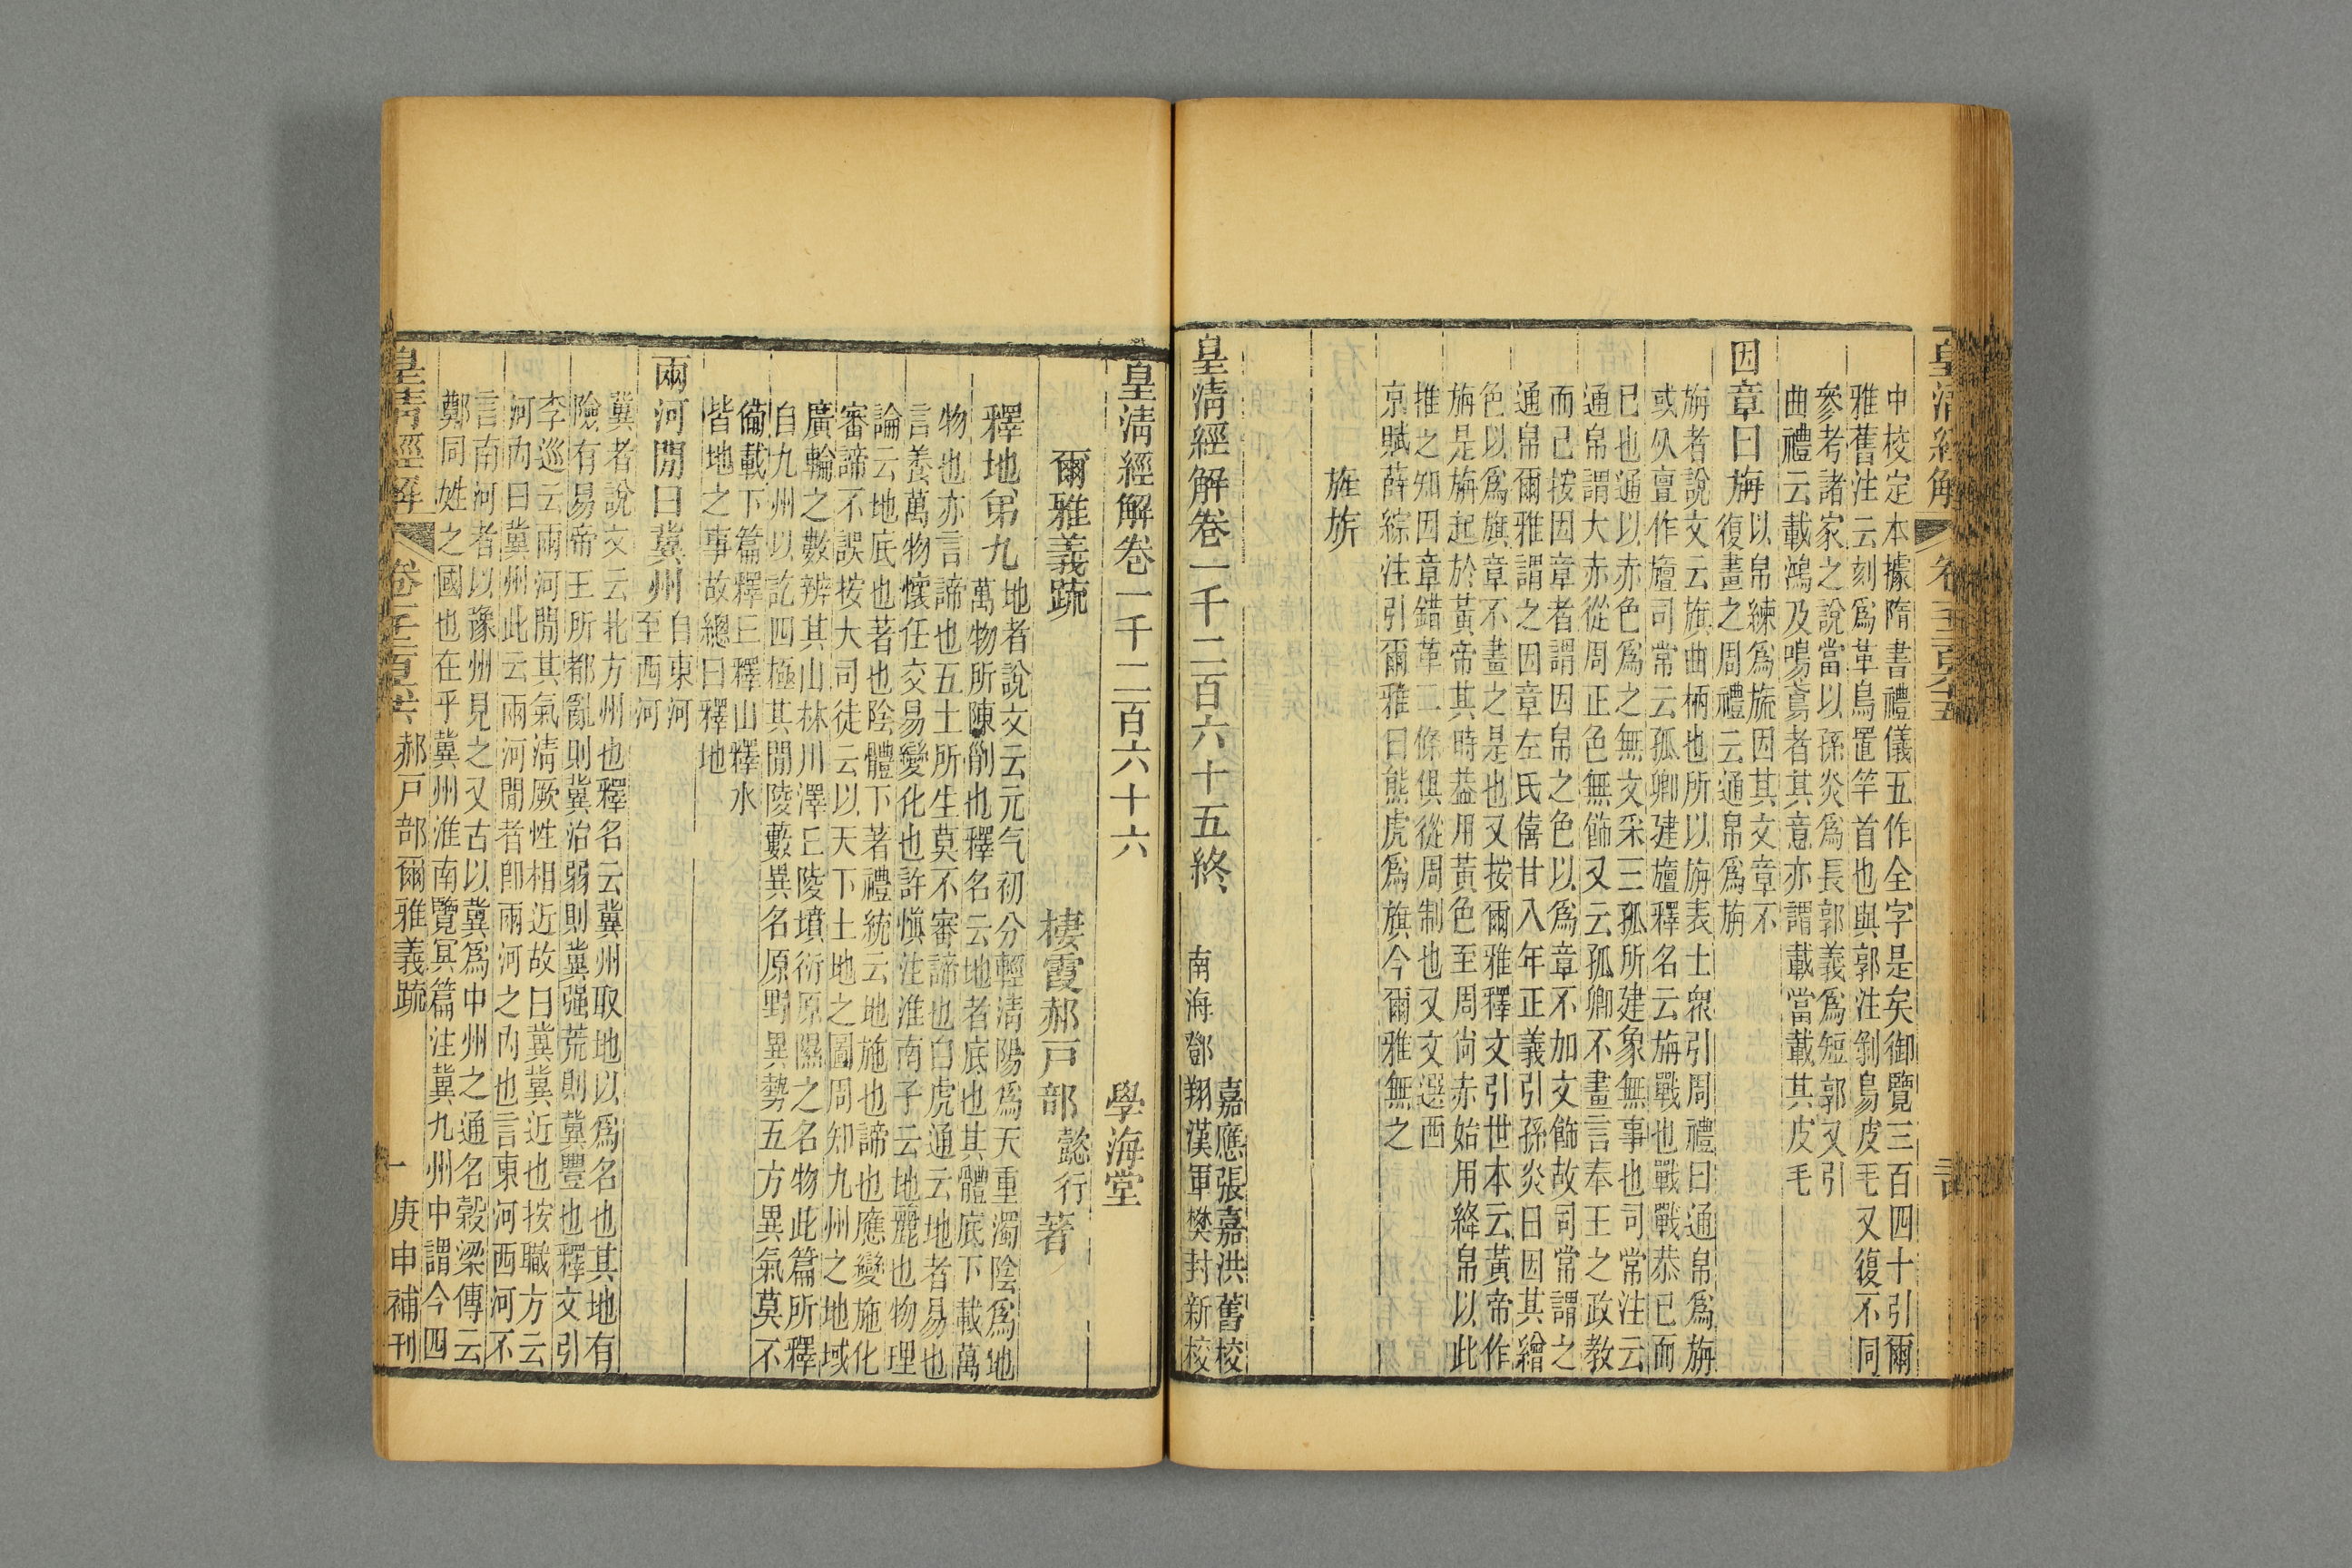 中校定本據隋書禮儀五作全字是矣御覽三百四十引爾
雅舊注云刻爲革鳥置竿首也與郭注剝鳥皮毛又復不同
參考諸家之說當以孫炎爲長郭義爲短郭又引
曲禮云載鴻及鳴鳶者其意亦謂載當載其皮毛
因章曰旃
以帛練爲旒因其文章不
復畫之周禮云通帛爲旃
旃者說文云旗曲柄也所以旃表士衆引周禮曰通帛爲旃
或从亶作旜司常云孤卿建旜釋名云旃戰也戰戰恭已而
已也通以赤色爲之無文采三孤所建象無事也司常注云
通帛謂大赤從周正色無飾又云孤卿不畫言奉王之政教
而已按因章者謂因帛之色以爲章不加文飾故司常謂之
通帛爾雅謂之因章左氏僖廿八年正義引孫炎曰因其繒
色以爲旗章不畫之是也又按爾雅釋文引世本云黃帝作
旃是旃起於黃帝其時葢用黃色至周尚赤始用絳帛以此
推之知因章錯革二條俱從周制也又文選西
京賦薛綜注引爾雅曰熊虎爲旗今爾雅無之
旌旂
皇淸經解卷一千二百六十五終
嘉應張嘉洪舊校
南海鄧翔漢軍樊封新校
皇淸經解卷一千二百六十六
學海堂
爾雅義疏
棲霞郝戸部懿行著
釋地弟九
地者說文云元气初分輕淸陽爲天重濁陰爲地
萬物所陳𠛱也釋名云地者底也其體底下載萬
物也亦言諦也五土所生莫不審諦也白虎通云地者易也
言養萬物懷任交易變化也許愼注淮南子云地麗也物理
論云地底也著也陰體下著禮統云地施也諦也應變施化
審諦不誤按大司徒云以天下土地之圖周知九州之地域
廣輪之數辨其山林川澤𠀉陵墳衍原隰之名物此篇所釋
自九州以訖四極其閒陵藪異名原野異勢五方異氣莫不
備載下篇釋𠀉釋山釋水
皆地之事故總曰釋地
兩河閒曰冀州
自東河
至西河
冀者說文云北方州也釋名云冀州取地以爲名也其地有
險有易帝王所都亂則冀治弱則冀强荒則冀豐也釋文引
李巡云兩河閒其氣淸厥性相近故曰冀冀近也按職方云
河內曰冀州此云兩河閒者卽兩河之內也言東河西河不
言南河者以豫州見之又古以冀爲中州之通名穀梁傳云
鄭同姓之國也在乎冀州淮南覽冥篇注冀九州中謂今四
皇淸經解
郝戸部爾雅義疏
一
庚申補刊